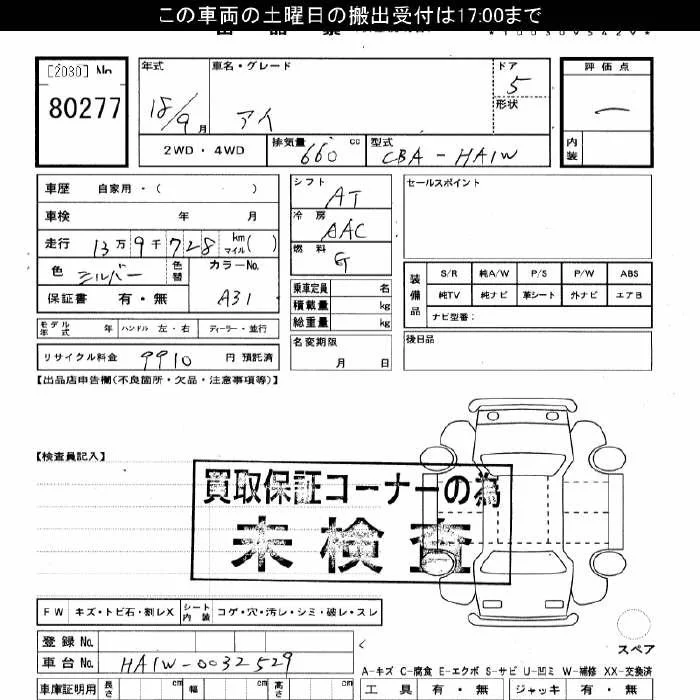 この車両の土曜日の搬出受付は17:00まで
[2030] No 年式 車名・グレード ドア 評価点
80277 18/9月 アイ 5 形状 ー
2WD・4WD 排気量 660 cc 型式 CBA-HA1W 内装
車歴 自家用・( ) シフト AT セールスポイント
車検 年 月 冷房 AAC
走行 13万9千728 km マイル ( ) 燃料 G
色 シルバー 色替 カラーNo. A31 乗車定員 名 装備品 S/R 純A/W P/S P/W ABS
保証書 有・無 積載量 kg 純TV 純ナビ 革シート 外ナビ エアB
総重量 kg ナビ型番:
モデル年式 年 ハンドル 左・右 ディーラー・並行 名変期限 月 日 後日品
リサイクル料金 9910 円 預託済
【出品店申告欄(不良箇所・欠品・注意事項等)】
【検査員記入】
買取保証コーナーの為
未検査
FW キズ・トビ石・割レX シート内装 コゲ・穴・汚レ・シミ・破レ・スレ
登録No.
スペア
車台No. HA1W-0032529
A-キズ C-腐食 E-エクボ S-サビ U-凹ミ W-補修 XX-交換済
車庫証明用 長さ cm 幅 cm 高さ cm 工具 有・無 ジャッキ 有・無